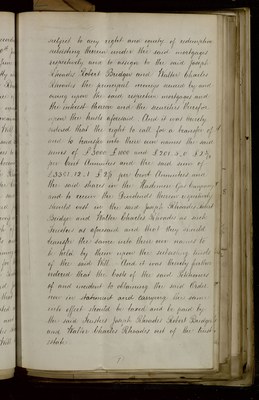 subject to any right and equity of redemption
subsisting therein under the said mortgages
respectively and to assign to the said Joseph
Rhoades Robert Bridges and Walter Charles
Rhoades the principal moneys secured by and
owing upon the same respective mortgages and
the interest thereon and the securities therefor
upon the trusts aforesaid And it was thereby
ordered that the right to call for a transfer of
and to transfer into their own names the said
sums of £3000 £1000 and £201. 5. 0 £2½
per Cent Annuities and the said sum of
£3351. 12. 1 £2¾ per Cent Annuities and
the said shares in the Gas Company
and to receive the Dividends thereon
should vest in the said Joseph Rhoades Robert
Bridges and Walter Charles Rhoades as such
Trustees as aforesaid and that they should
transfer the same into their own names to
be held by them upon the subsisting trusts
of the said Will And it was thereby further
ordered that the Costs of the said Petitioners
of and incident to obtaining the said Order
now in statement and carrying the same
into effect should be taxed and be paid by
the said Trustees Joseph Rhoades Robert Bridges
and Walter Charles Rhoades out of the trust
estate.